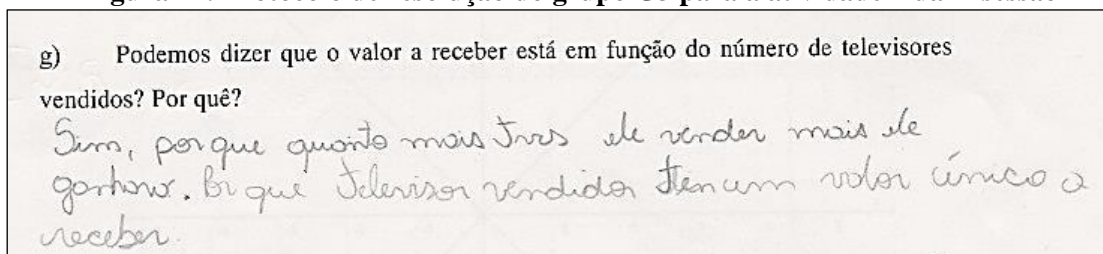 g) Podemos dizer que o valor a receber está em função do número de televisores
vendidos? Por quê?
Sim, porque quanto mais tvs ele vender mais ele
. Por que televisor vendidor tem um valor único a
receber.